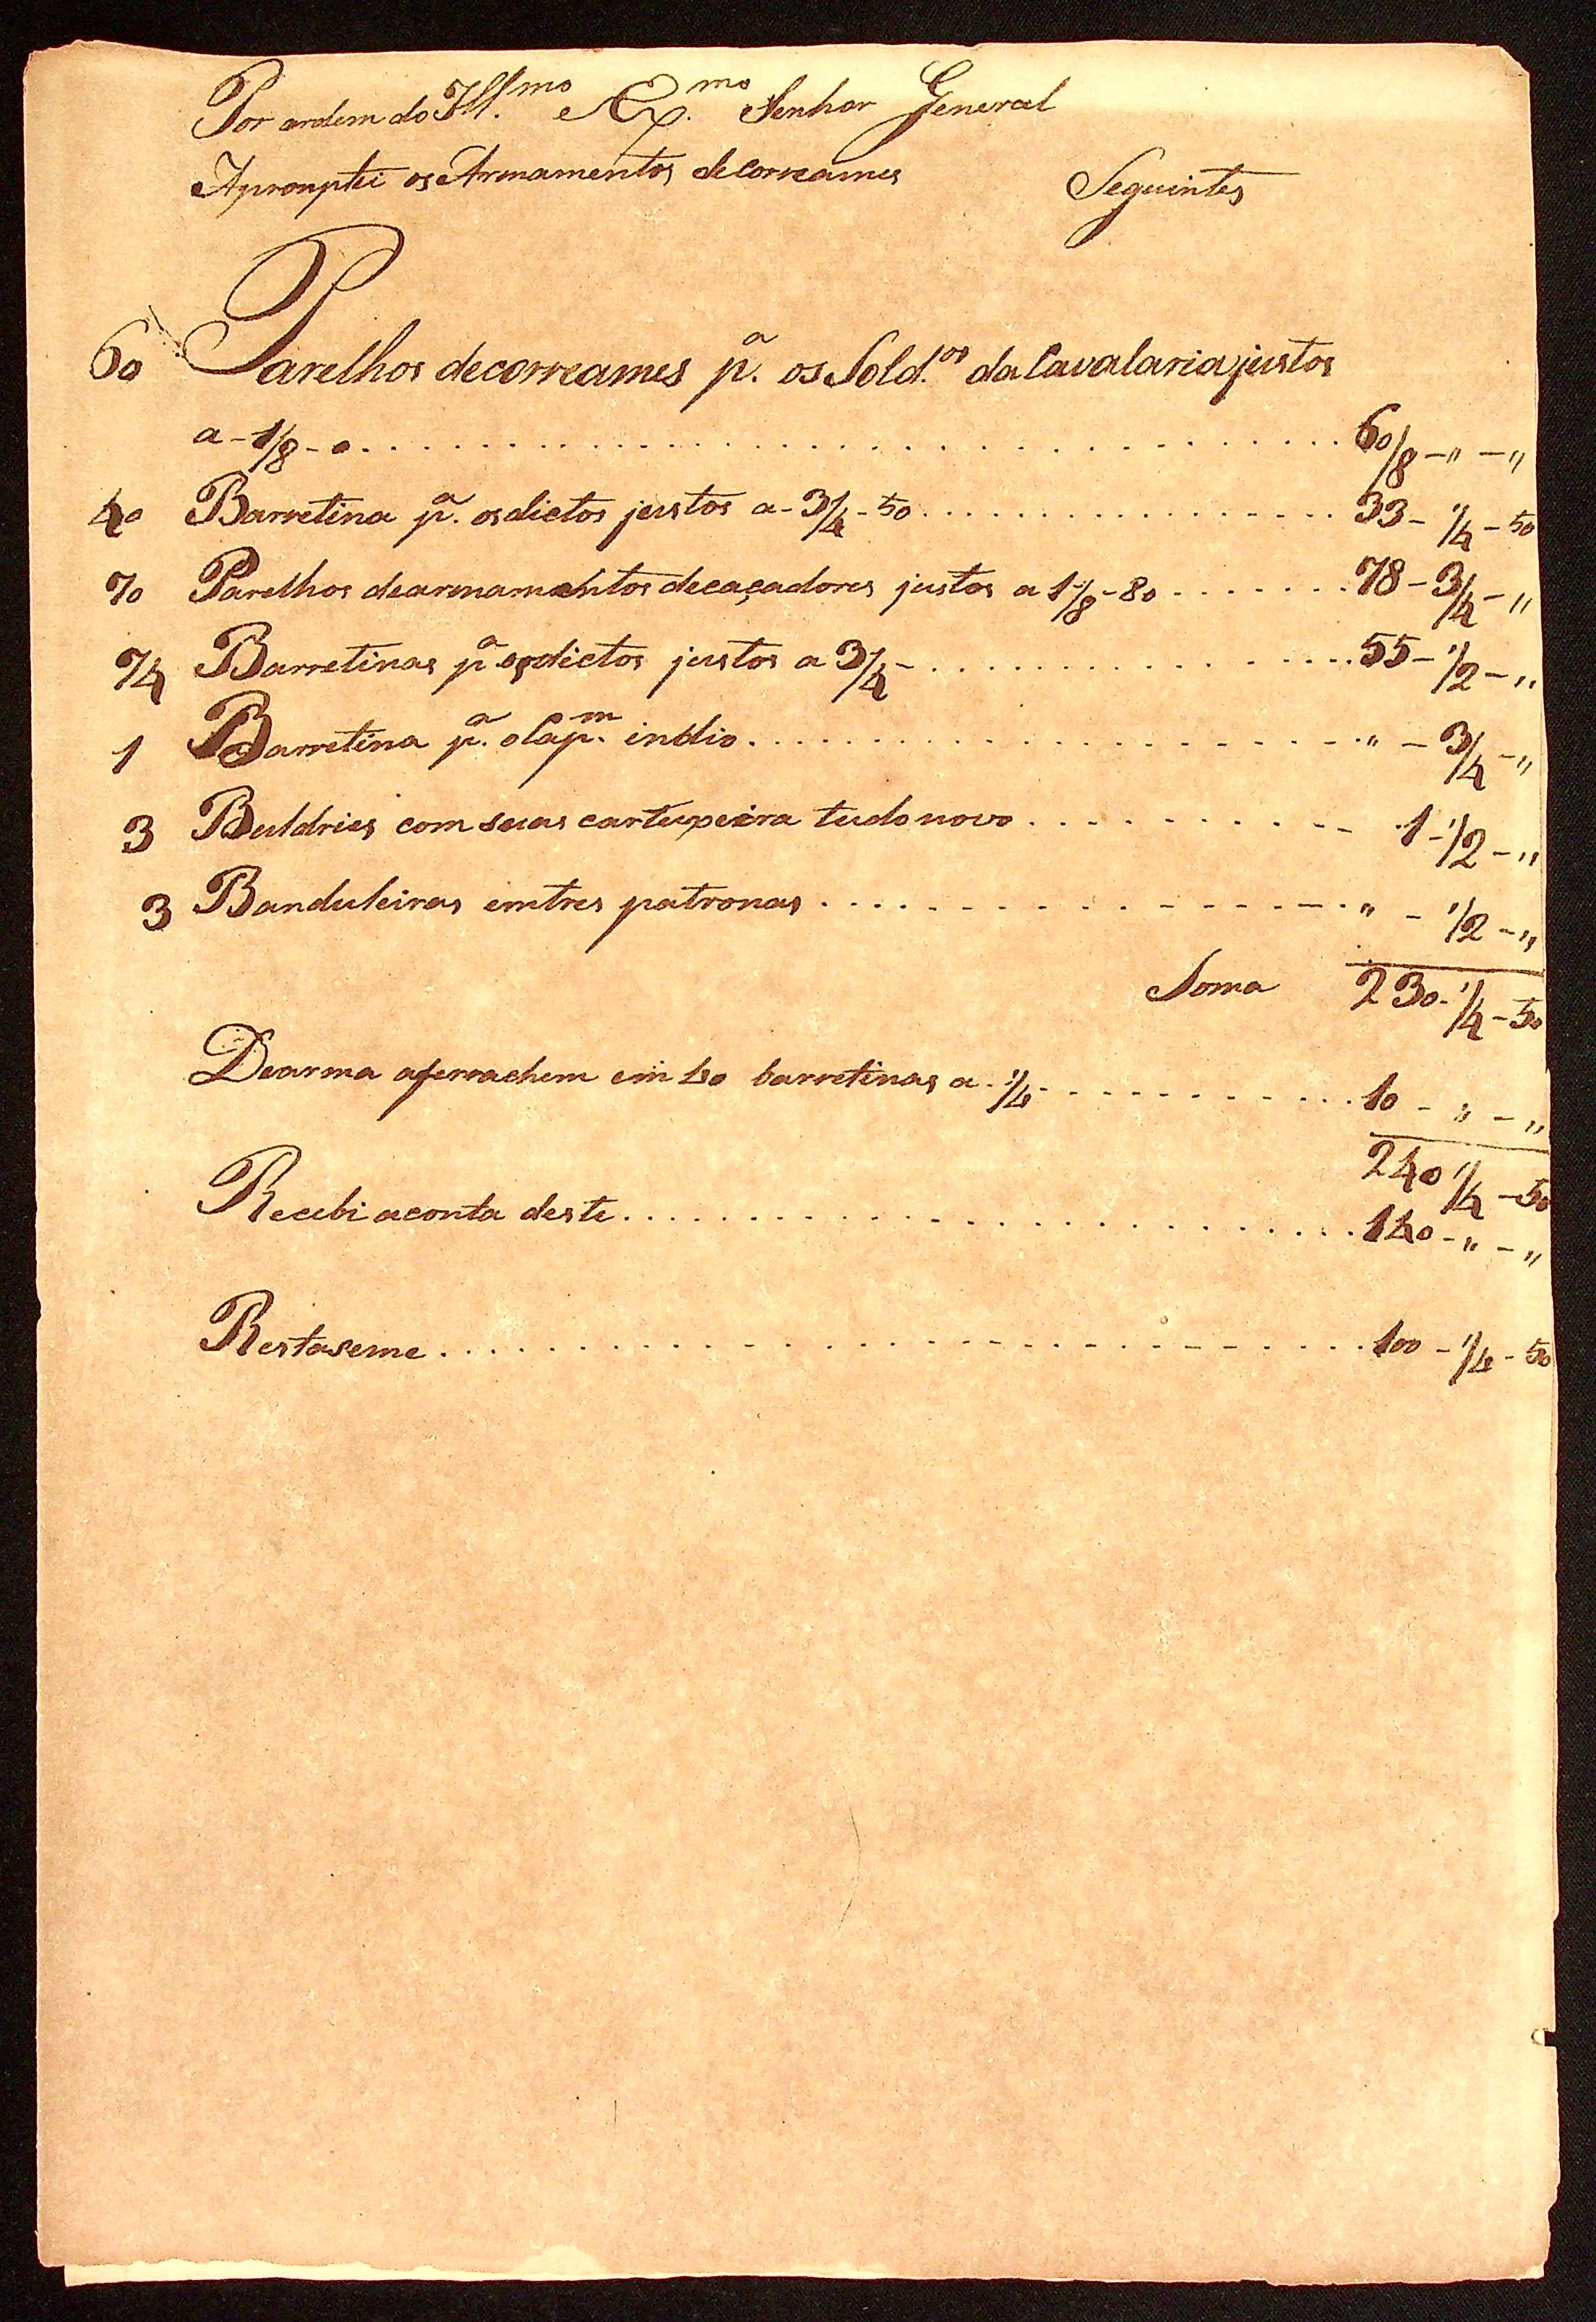 Por ordem do Ill.mo e Ex.mo Senhor General
Apromptei os Armamentos de Correames Seguintes
60 Parelhos decorreames p.a os Sold.os da Cavalaria justos
a - 1/8 - 0 . . . . . . . . . . 60/8 - " - "
40 Barretina p.a osdictos justos a - 3/4 - 50 . . . . . . . . . . 33 - 1/4 - 50
70 Parelhos dearmamentos decaçadores justos a 1/8 - 80 . . . . . . . 78 - 3/4 - "
74 Barretinas p.a osdictos justos a 3/4 - . . . . . . . . . . 55 - 1/2 - "
1 Barretina p.a oCap.m indio . . . . . . . . . . " - 3/4 - "
3 Buldries com suas cartuxeira tudo novo . . . . . . . . . . 1 - 1/2 - "
3 Banduleiras emtres patronas . . . . . . . . . . " - 1/2 - "
Soma 230 - 1/4 - 50
Dearma aferrachem em 40 barretinas a - 1/4 - . . . . . . . . . . 10 - " - "
240 1/4 - 50
Recebi aconta deste . . . . . . . . . . 140 - " - "
Restaseme . . . . . . . . . . 100 - 1/4 - 50